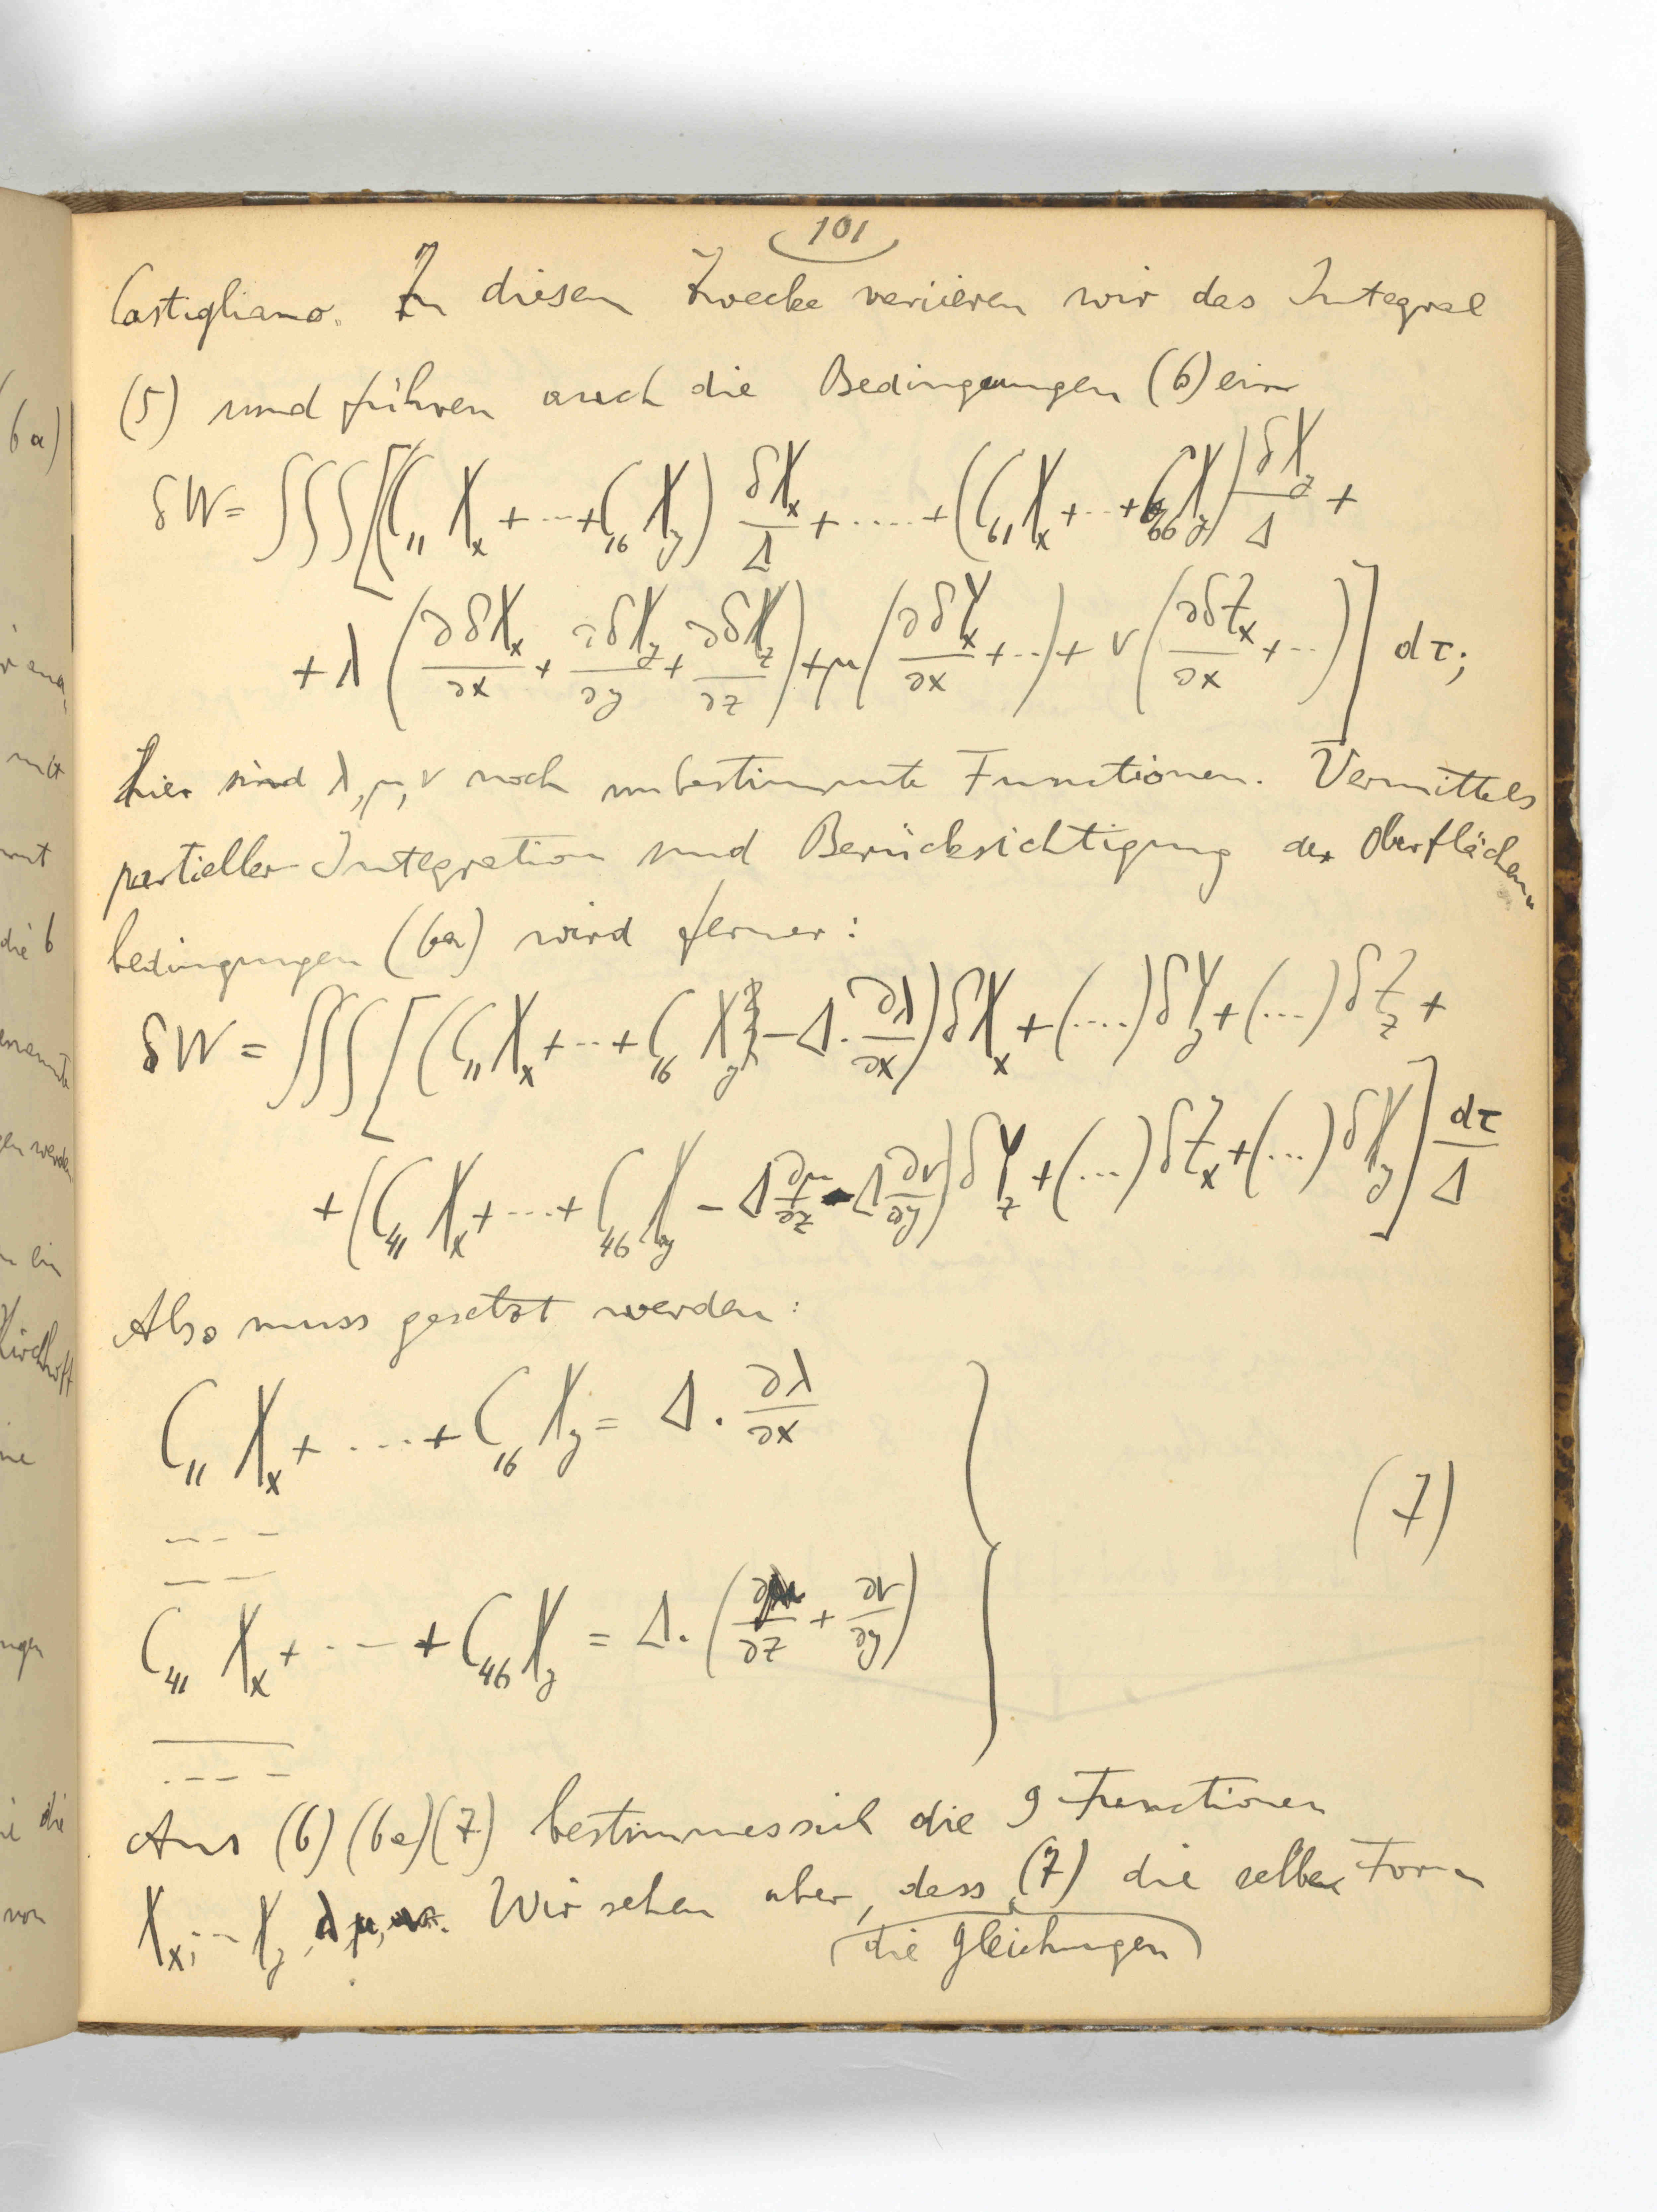 101
Castigliano. Zu diesem Zwecke variieren wir das Integral
(5) und führen auch die Bedingungen (6) ein
δW = ∫∫∫[(C₁₁ X_x + ··· + C₁₆ X_y) δX_x/Δ + ····· + (C₆₁ X_x + ··· + C₆₆ X_y) δX_y/Δ +
+ λ (∂δX_x/∂x + ∂δX_y/∂y + ∂δX_z/∂z) + μ (∂δY_x/∂x + ···) + ν (∂δZ_x/∂x + ···)] dτ;
hier sind λ, μ, ν noch unbestimmte Functionen. Vermittels
partieller Integration und Berücksichtigung der Oberflächen-
bedingungen (6a) wird ferner:
δW = ∫∫∫[(C₁₁ X_x + ··· + C₁₆ X_y - Δ · ∂λ/∂x) δX_x + (····) δY_y + (···) δZ_z +
+ (C₄₁ X_x + ···· + C₄₆ X_y - Δ ∂μ/∂z - Δ ∂ν/∂y) δY_z + (···) δZ_x + (···) δX_y] dτ/Δ
Also muss gesetzt werden:
C₁₁ X_x + ····· + C₁₆ X_y = Δ · ∂λ/∂x
- - - -
- - -
(7)
C₄₁ X_x + ··· + C₄₆ X_y = Δ · (∂μ/∂z + ∂ν/∂y)
- - - -
Aus (6) (6a) (7) bestimmes sich die 9 Functionen
X_x, ··· X_y, λ, μ, ν. Wir sehen aber, dass (7) die selbe Form
die Gleichungen
(6a)
mit
die 6
gen werden
Kirchhoff
ungen
die
von